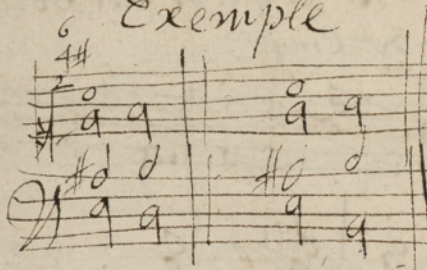 Exemple
6
4#
2